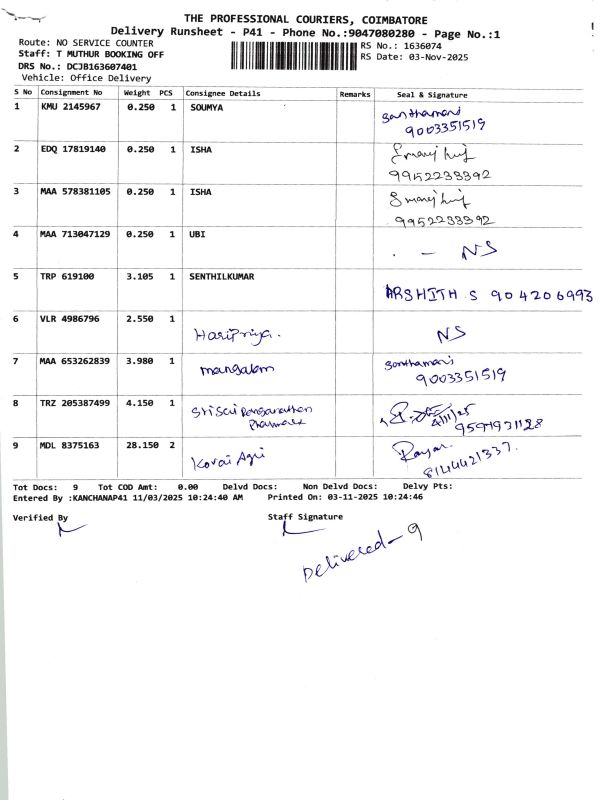 THE PROFESSIONAL COURIERS, COIMBATORE
Delivery Runsheet - P41 - Phone No.:9047080280 - Page No.:1
Route: NO SERVICE COUNTER
RS No.: 1636074
Staff: T MUTHUR BOOKING OFF
RS Date: 03-Nov-2025
DRS No.: DCJB163607401
Vehicle: Office Delivery
S No Consignment No Weight PCS Consignee Details Remarks Seal & Signature
1 KMU 2145967 0.250 1 SOUMYA Santhamani
9003351519
2 EDQ 17819140 0.250 1 ISHA
9952233392
3 MAA 578381105 0.250 1 ISHA
9952233392
4 MAA 713047129 0.250 1 UBI - NS
5 TRP 619100 3.105 1 SENTHILKUMAR ARSHITH S 904206993
6 VLR 4986796 2.550 1 HariPriya. NS
7 MAA 653262839 3.980 1 mangalam Santhamani
9003351519
8 TRZ 205387499 4.150 1 Sri Sai Ranganathan 4/11/25
9597931128
9 MDL 8375163 28.150 2 Kovai Agri
8144421337.
Tot Docs: 9 Tot COD Amt: 0.00 Delvd Docs: Non Delvd Docs: Delvy Pts:
Entered By :KANCHANAP41 11/03/2025 10:24:40 AM Printed On: 03-11-2025 10:24:46
Verified By Staff Signature
Delivered - 9